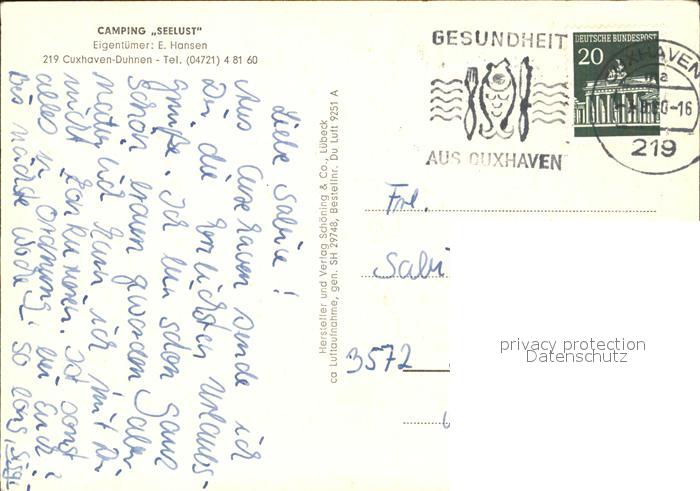 CAMPING „SEELUST"
Eigentümer: E. Hansen
219 Cuxhaven-Duhnen - Tel. (04721) 4 81 60
Liebe Sabine!
Aus Cuxhaven sende ich
Dir die herzlichsten Urlaubs-
grüße. Ich bin schon ganz
schön braun geworden, aber
natürlich kann ich mit Dir
nicht konkurieren. Ist sonst
alles in Ordnung bei Euch?
Bis nächste Woche! so long,
Hersteller und Verlag Schöning & Co., Lübeck
ca Luftaufnahme, gen. SH 29748, Bestellnr. Du Luft 9251 A
GESUNDHEIT
AUS CUXHAVEN
DEUTSCHE BUNDESPOST
20
CUXHAVEN
219
Frl.
Sabi
3572
privacy protection
Datenschutz